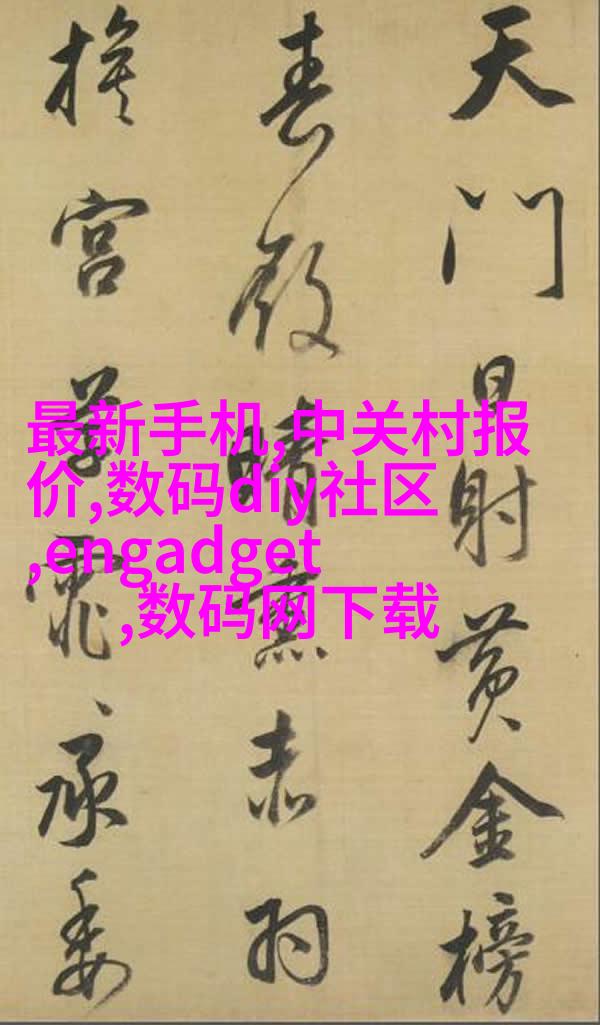 天門日射黃金榜
春殿晴熏赤羽
旗宮草霏〻承委
最新手机,中关村报
价,数码diy社区
,engadget
,数码网下载